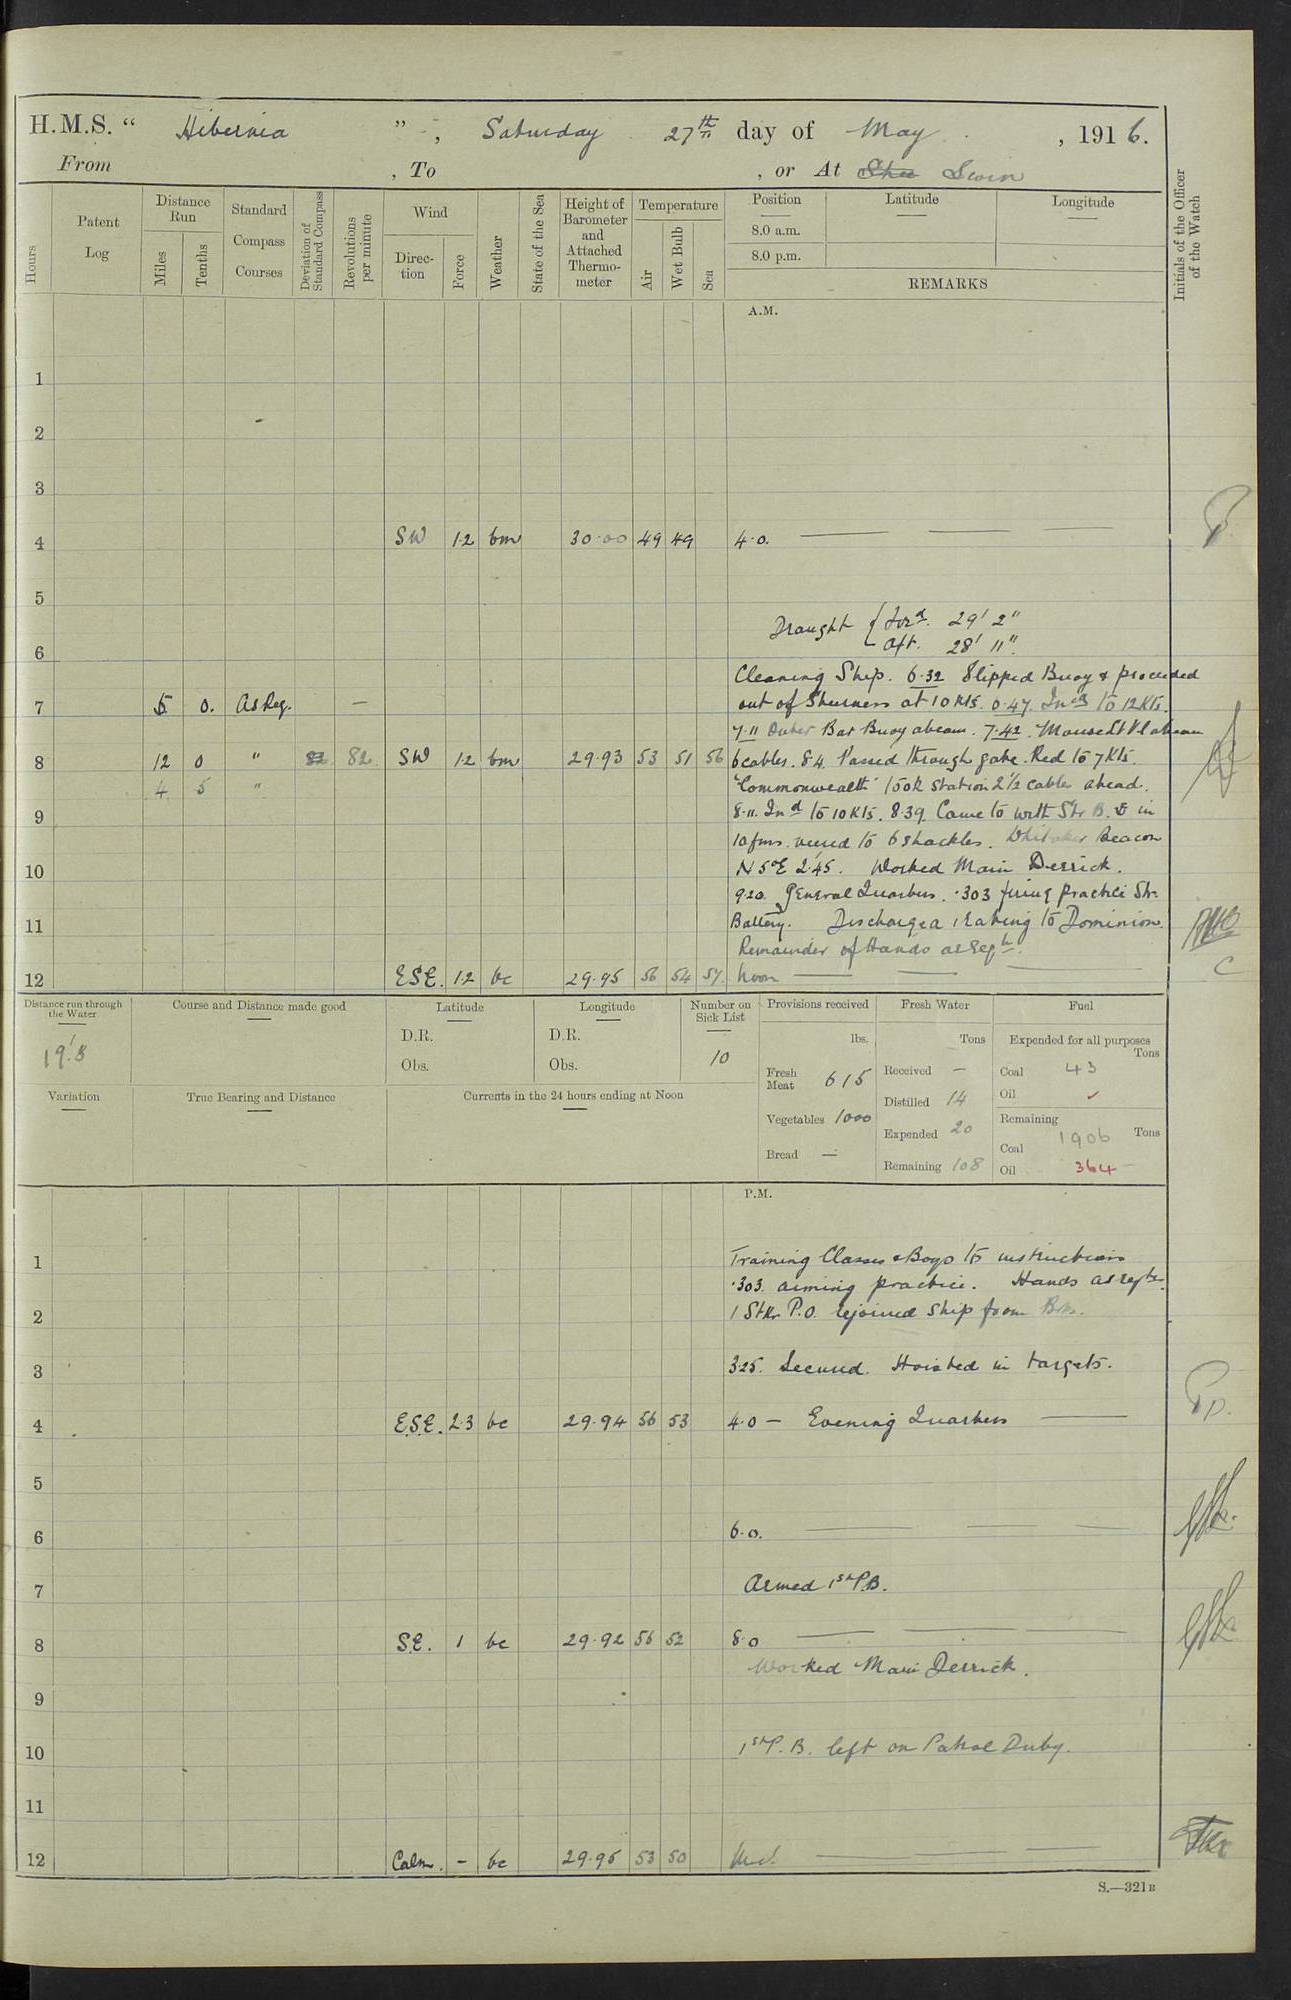 H.M.S. “ Hibernia ” , Saturday 27th day of May , 1916.
From , To , or At Shee Swin
Hours
Patent Log
Distance Run
Miles
Tenths
Standard Compass Courses
Deviation of Standard Compass
Revolutions per minute
Wind
Direction
Force
Weather
State of the Sea
Height of Barometer and Attached Thermometer
Temperature
Air
Wet Bulb
Sea
Position
8.0 a.m.
8.0 p.m.
Latitude
Longitude
REMARKS
Initials of the Officer of the Watch
A.M.
1
2
3
4 SW 1.2 bm 30.00 49 49 4.0.
5
Draught { Ford. 29' 2"
6 Aft. 28' 11"
Cleaning Ship. 6.32 Slipped Buoy & proceeded
7 5 0. As Req. — out of Sheerness at 10 Kts. 6.47. Incd to 12 Kts.
7.11 Outer Bar Buoy abeam. 7.42. Mouse Lt Vl abeam
8 12 0 " 82 82 SW 1.2 bm 29.93 53 51 56 6 cables. 8.4. Passed through gate. Red to 7 Kts.
4 5 " "Commonwealth" took station 2½ cables ahead.
9 8.11. Incd to 10 Kts. 8.39. Came to with Str B. in
10 fms. veered to 6 shackles. Whitaker Beacon
10 N 5°E 2'.45. Worked Main Derrick.
9.20. General Quarters. .303 firing practice Str
11 Battery. Discharged 1 rating to Dominion.
Remainder of Hands as reqte.
12 ESE. 1.2 bc 29.95 56 54 57. Noon
Distance run through the Water
19'.8
Course and Distance made good
Latitude
D.R.
Obs.
Longitude
D.R.
Obs.
Number on Sick List
10
Variation
True Bearing and Distance
Currents in the 24 hours ending at Noon
Provisions received
lbs.
Fresh Meat 615
Vegetables 1000
Bread —
Fresh Water
Tons
Received —
Distilled 14
Expended 20
Remaining 108
Fuel
Expended for all purposes
Tons
Coal 43
Oil
Remaining
Tons
Coal 1906
Oil 364
P.M.
1 Training Classes & Boys to instructions
.303. aiming practice. Hands as reqte.
2 1 Stkr P.O. rejoined ship from
3 3.25. Secured. Hoisted in targets.
4 E.S.E. 2.3 bc 29.94 56 53 4.0 — Evening Quarters
5
6 6.0.
7 Armed 1st P.B.
8 S.E. 1 bc 29.92 56 52 8.0
Worked Main Derrick.
9
10 1st P.B. left on Patrol Duty.
11
12 Calm. – bc 29.95 53 50 Mid.
S.—321B